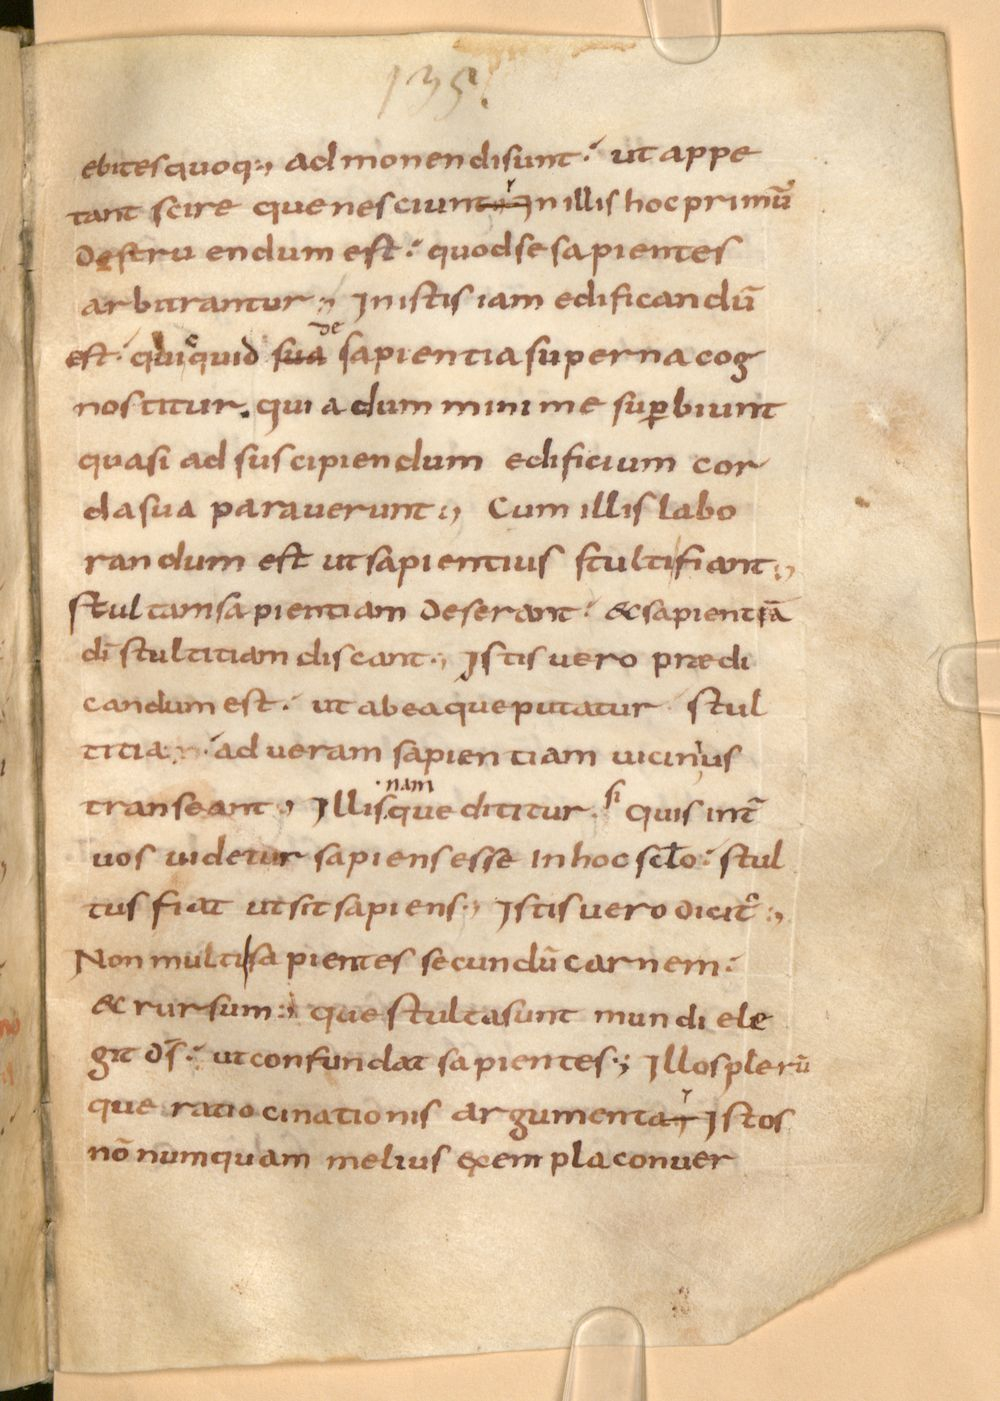 135.
ebites quoq:, admonendi sunt: ut appe
tant scire que nesciunt In illis hoc primū
destruendum est: quod se sapientes
arbitrantur; In istis iam edificandū
est. quicquid sua de sapientia superna cog
nostitur. quia dum minime suꝑbiunt
quasi ad suscipiendum edificium cor
da sua parauerunt;, Cum illis labo
randum est ut sapientius stultifiant;,
stultam sapientiam deserant: & sapientiā
dī stultitiam discant; Istis uero prædi
candum est: ut ab ea que putatur stul
titia: ad ueram sapientiam uicinius
transeant; Illis nam que dititur. si quis int̄
uos uidetur sapiens esse In hoc sclo: stul
tus fiat ut sit sapiens; Istis uero dicit:,
Non multi sapientes secundū carnem:
& rursum: que stulta sunt mundi ele
git ds̄: ut confundat sapientes; Illos plerū
que ratiocinationis argumenta Istos
nō numquam melius exempla conuer